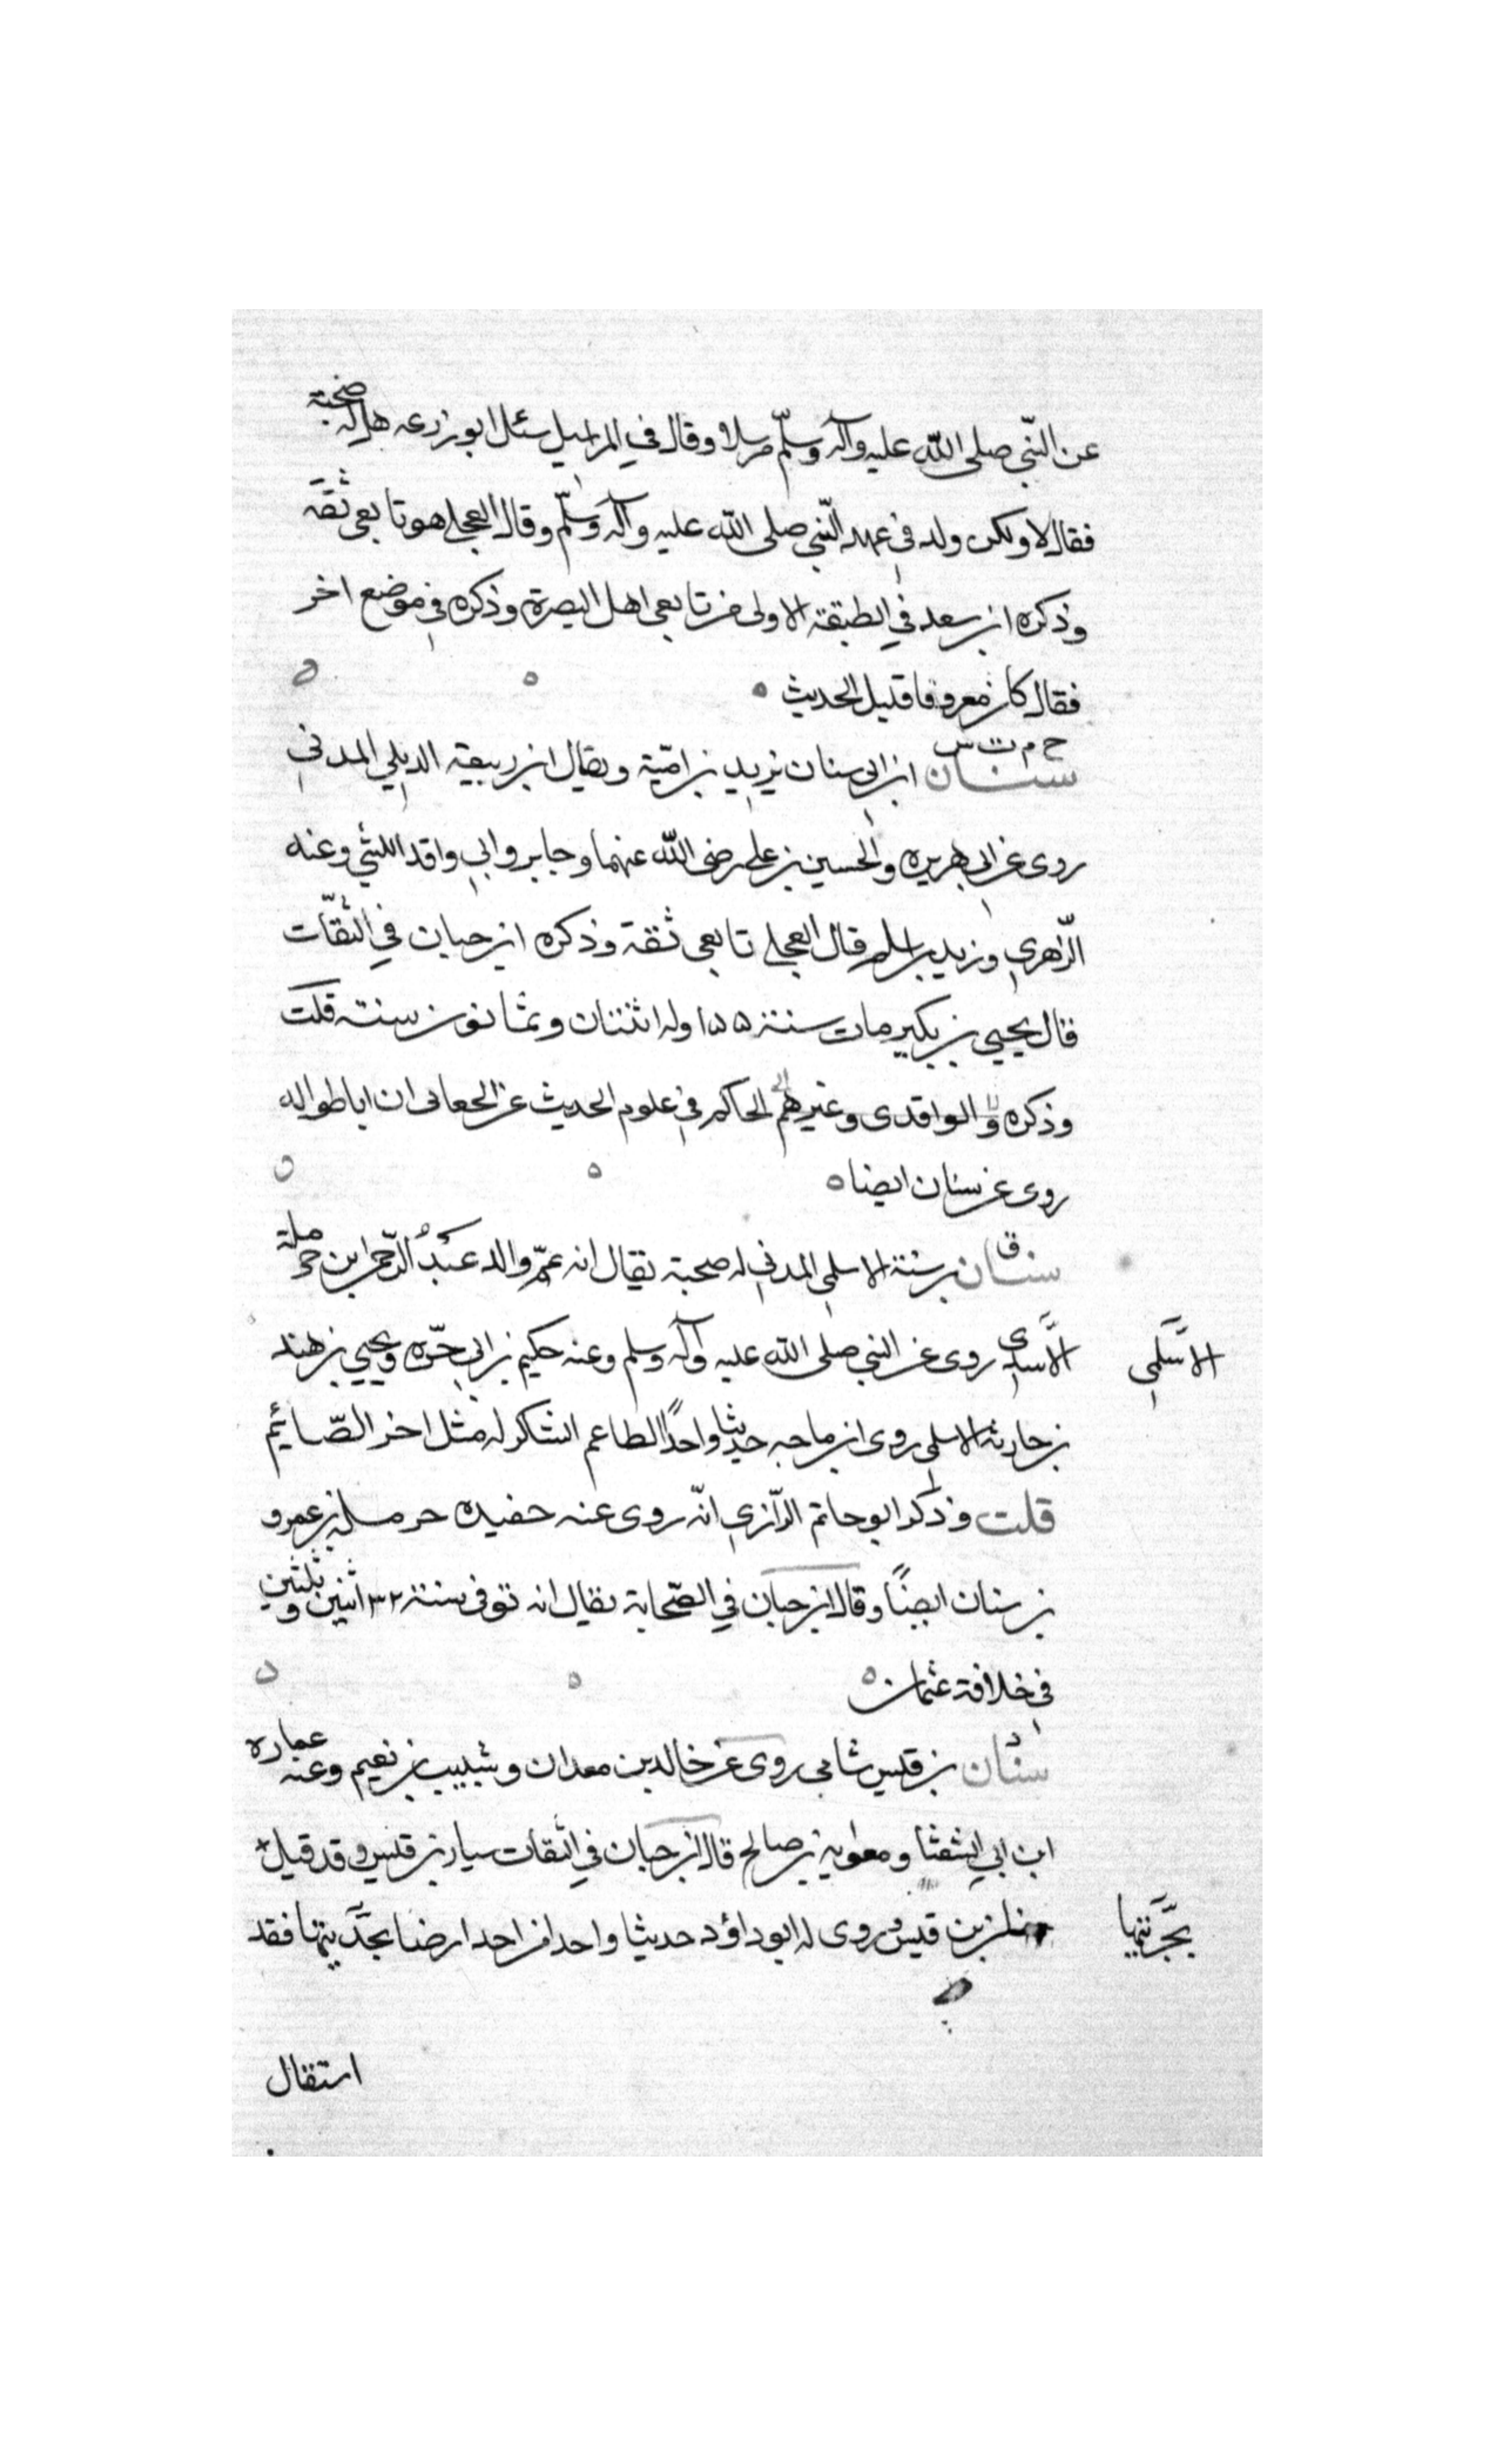 عن النّبي صلى الله عليه وآله وسلّم مرسلا وقال في المراسيل سئل ابو زرعه هل له صحبة
فقال لا ولكن ولد في عهد النّبي صلى الله عليه وآله وسلّم وقال العجلي هو تابعي ثقة
وذكره ابن سعد في الطبقة الاولى من تابعي اهل البصرة وذكره في موضع اخر
فقال كان معروفا قليل الحديث
خ م ت س
سنان ابن ابي سنان يزيد بن اميّة ويقال ابن ربيعة الديلي المدني
روى عن ابي هريره والحسين بن علي رضي الله عنهما وجابر وابي واقد الليثي وعنه
الزّهري وزيد بن اسلم قال العجلي تابعي ثقة وذكره ابن حبان في الثقات
قال يحيي بن بكير مات سنة ١٥٥ وله اثنتان وثمانون سنة قلت
وذكره والواقدى وغيرهم الحاكم في علوم الحديث عن الجعابى ان ابا طواله
روى عن سنان ايضا
ق
سنان بن سنة الاسلمي المدني له صحبة يقال انه عمّ والد عبد الرّحمن ابن حرملة
الاسدى روى عن النبي صلى الله عليه وآله وسلم وعنه حكيم بن ابي حرّه ويحيي بن هند
الاسلمي
بن حارثة الاسلمي روى ابن ماجه حديثا واحدًا الطاعم الشاكر له مثل اخر الصّايم
قلت وذكر ابو حاتم الرّازي انّه روى عنه حفيده حرملة بن عمرو
بن سنان ايضًا وقال ابن حبان في الصّحابة يقال انه توفى سنة ٣٢ اثنين وثلثين
في خلافة عثمان
د
سنان بن قيس شامي روى عن خالد بن معدان وشبيب بن نعيم وعنه عماره
ابن ابي الشعثا ومعاويه بن صالح قال ابن حبان في الثقات سيار بن قيس وقد قيل
سنان بن قيس وروى له ابو داؤد حديثا واحدا من احد ارضا بجزيتها فقد
بجزيتها
استقال